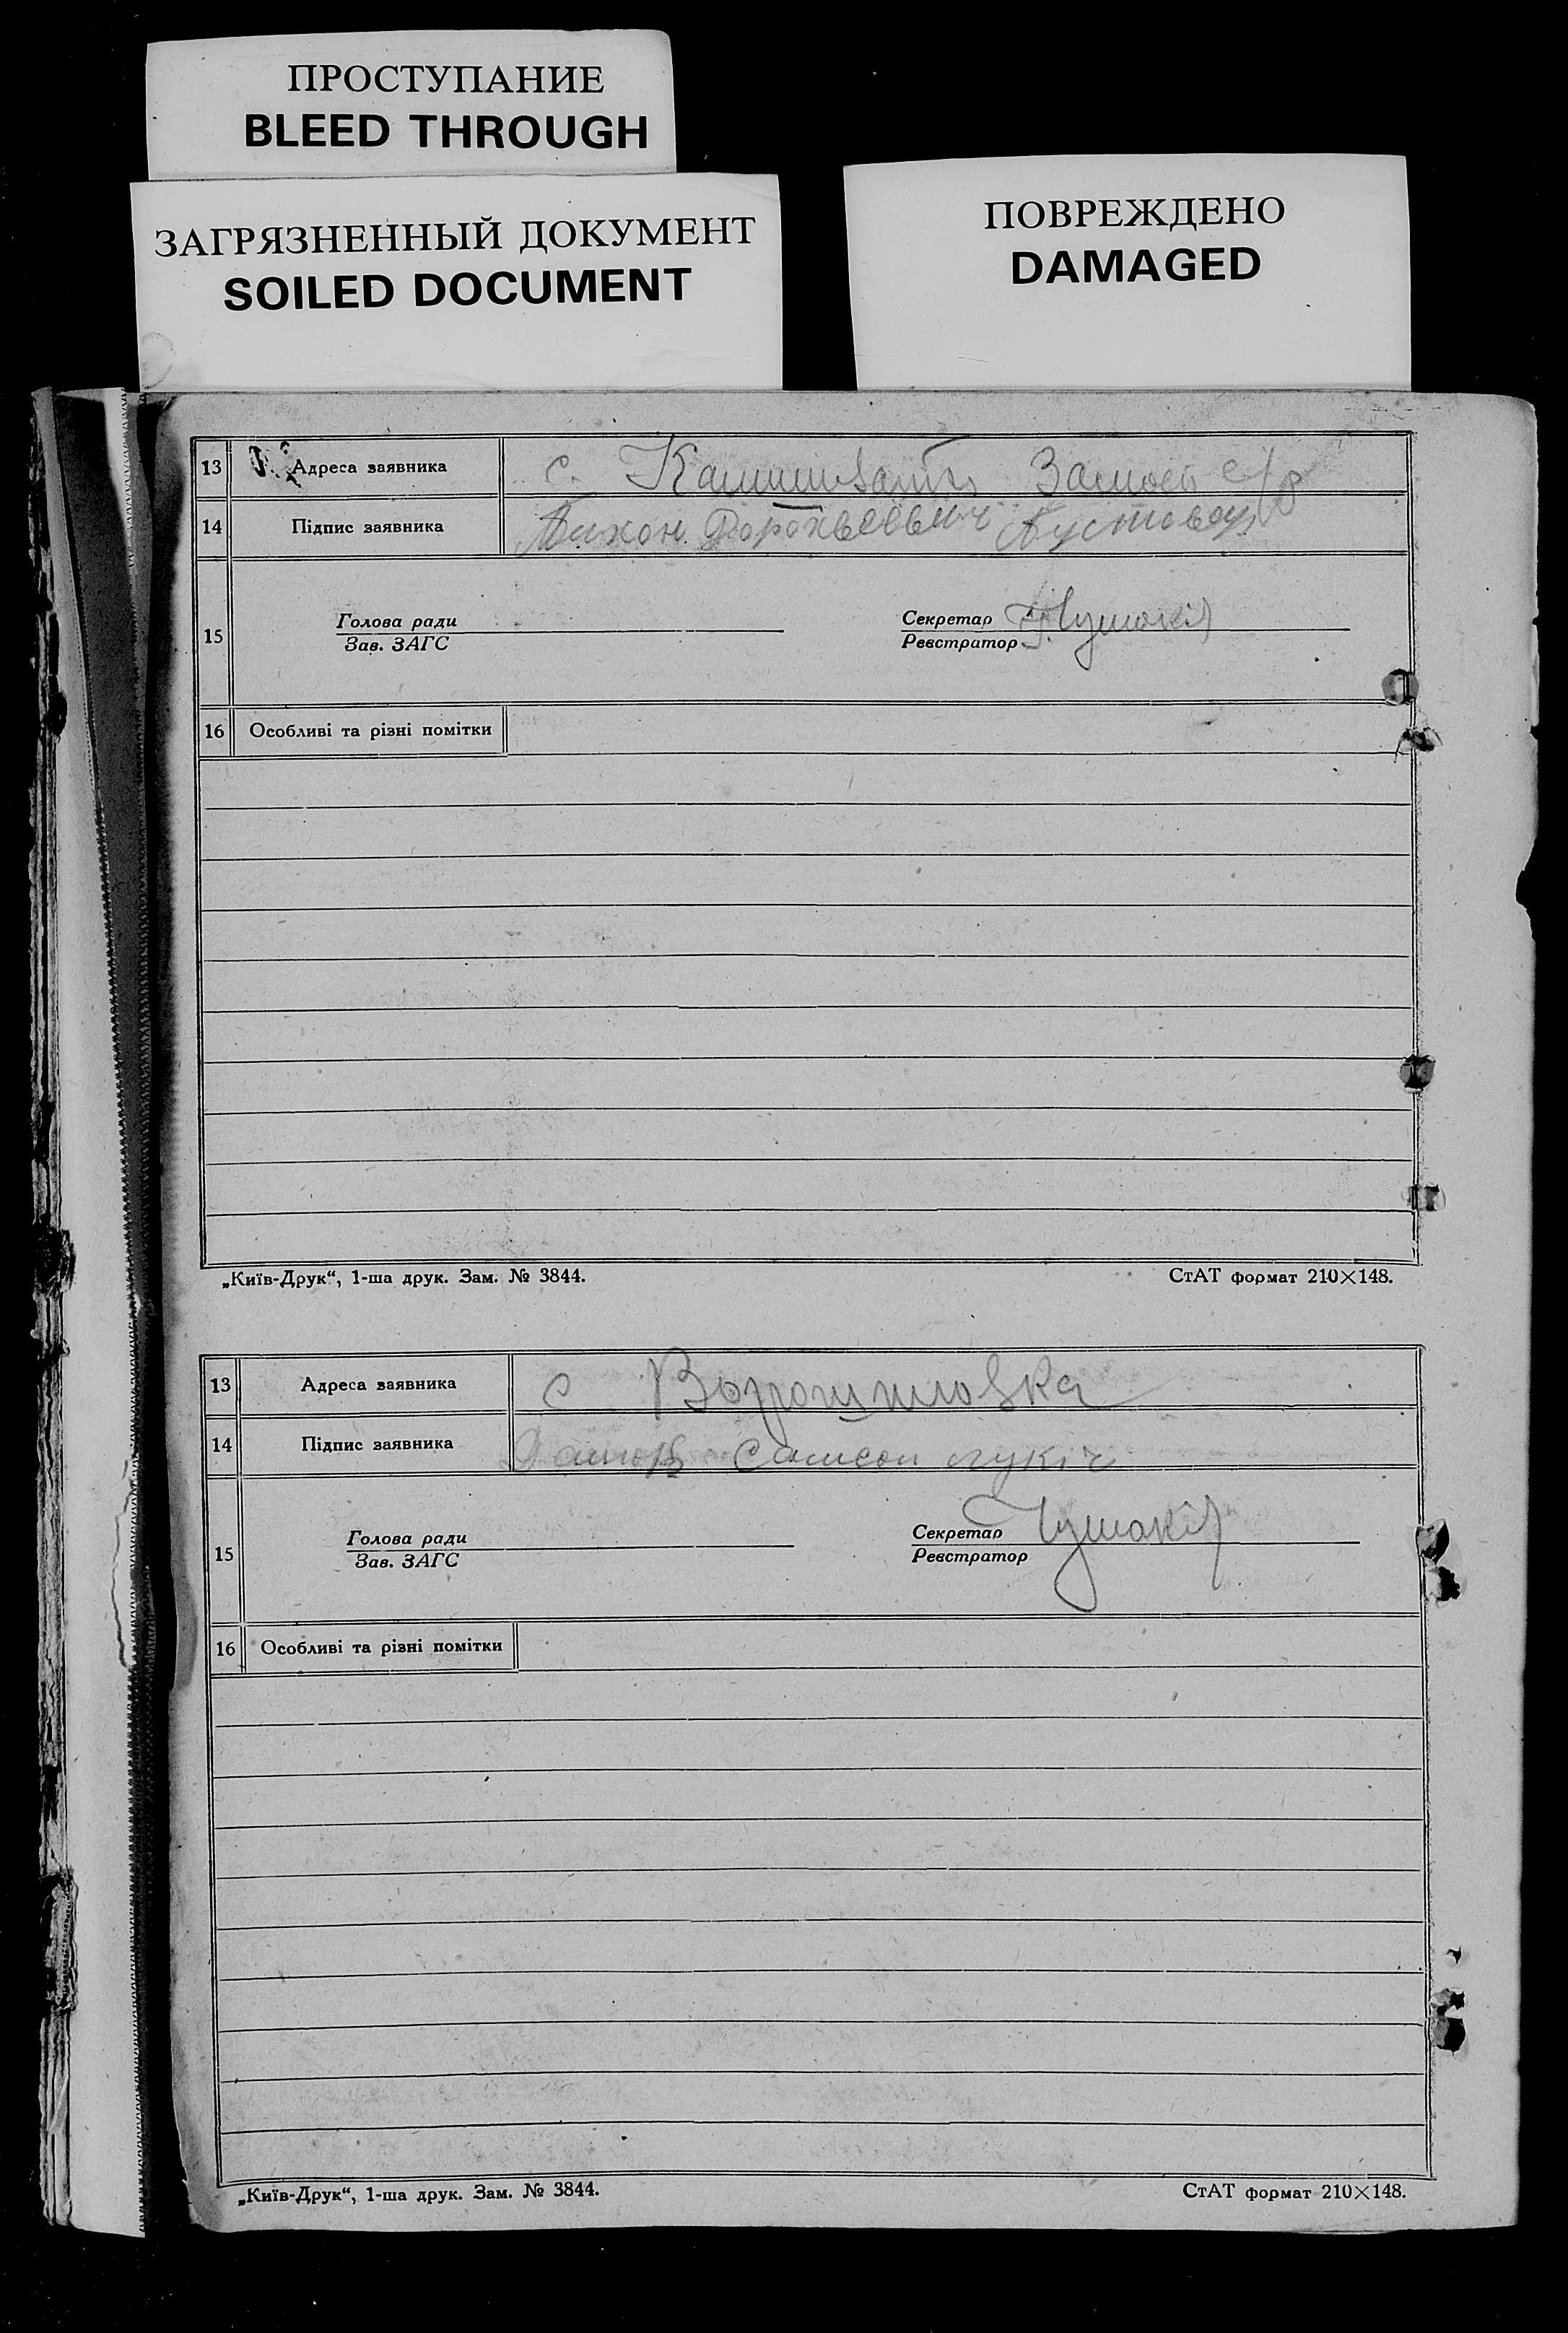 ПРОСТУПАНИЕ
BLEED THROUGH
ЗАГРЯЗНЕННЫЙ ДОКУМЕНТ
SOILED DOCUMENT
ПОВРЕЖДЕНО
DAMAGED
13 Адреса заявника с. с/р
14 Підпис заявника Тихон
Голова ради Секретар
15
Зав. ЗАГС Реєстратор
16 Особливі та різні помітки
„Київ-Друк“, 1-ша друк. Зам. № 3844. СтАТ формат 210×148.
13 Адреса заявника с Ворошиловка
14 Підпис заявника Самсон лукіч
Голова ради Секретар
15
Зав. ЗАГС Реєстратор
16 Особливі та різні помітки
„Київ-Друк“, 1-ша друк. Зам. № 3844. СтАТ формат 210×148.